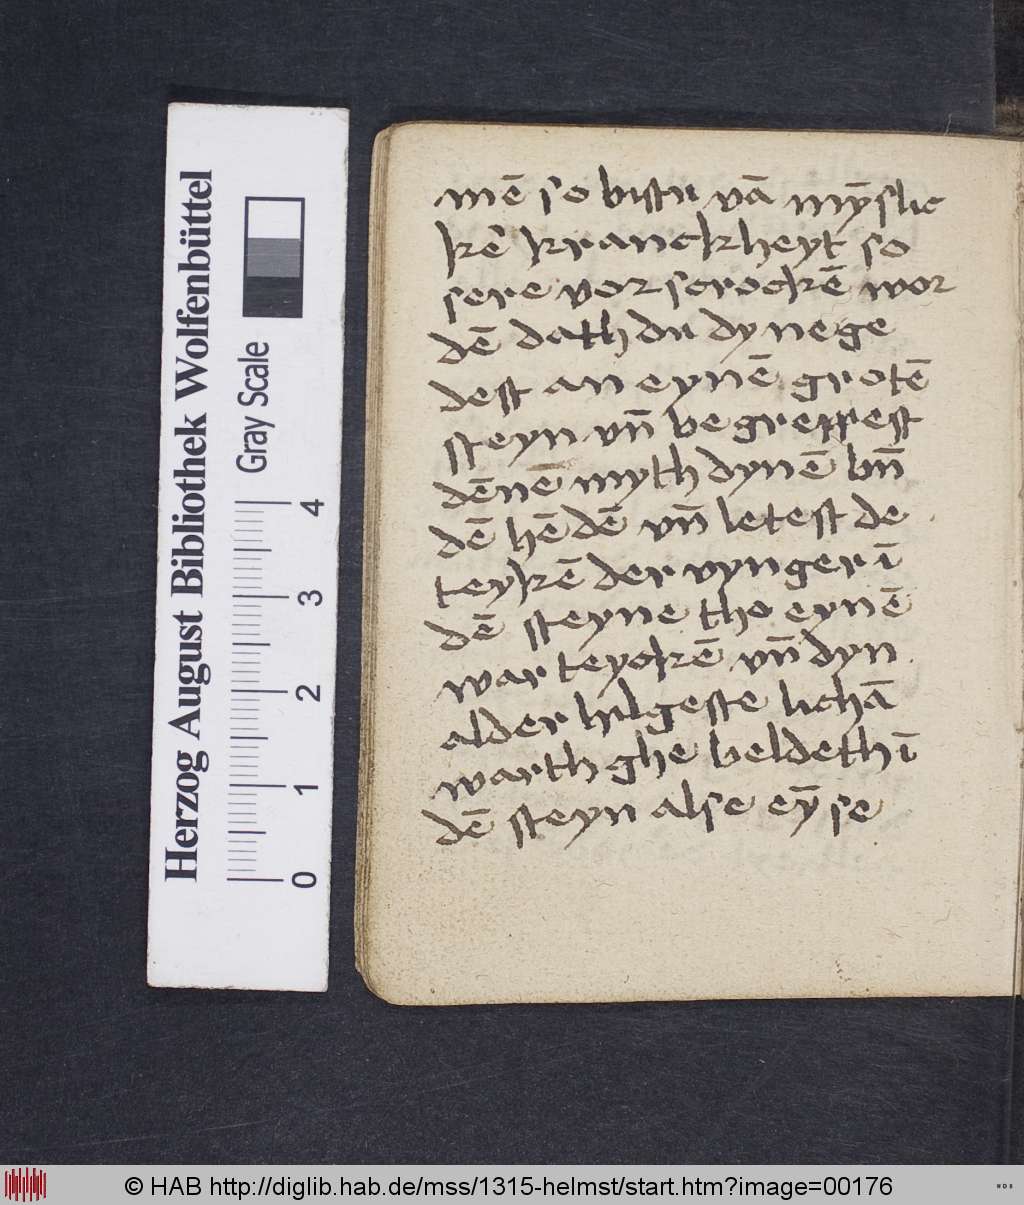 mē so bistu vā mȳslic
kē kranckheyt so
sere vorscrockē wor
dē dath du dy nege
dest an eynē grotē
steyn vn̄ begreppest
dēnē myth dynē bn̄
dē hēdē vn̄ letest de
teykē der vynger ī
dē steyne tho eynē
warteyckē vn̄ dyn
alder hilgeste lichā
warth ghe beldeth ī
dē steyn alse eȳ se
Herzog August Bibliothek Wolfenbüttel
Gray Scale
0 1 2 3 4
© HAB http://diglib.hab.de/mss/1315-helmst/start.htm?image=00176